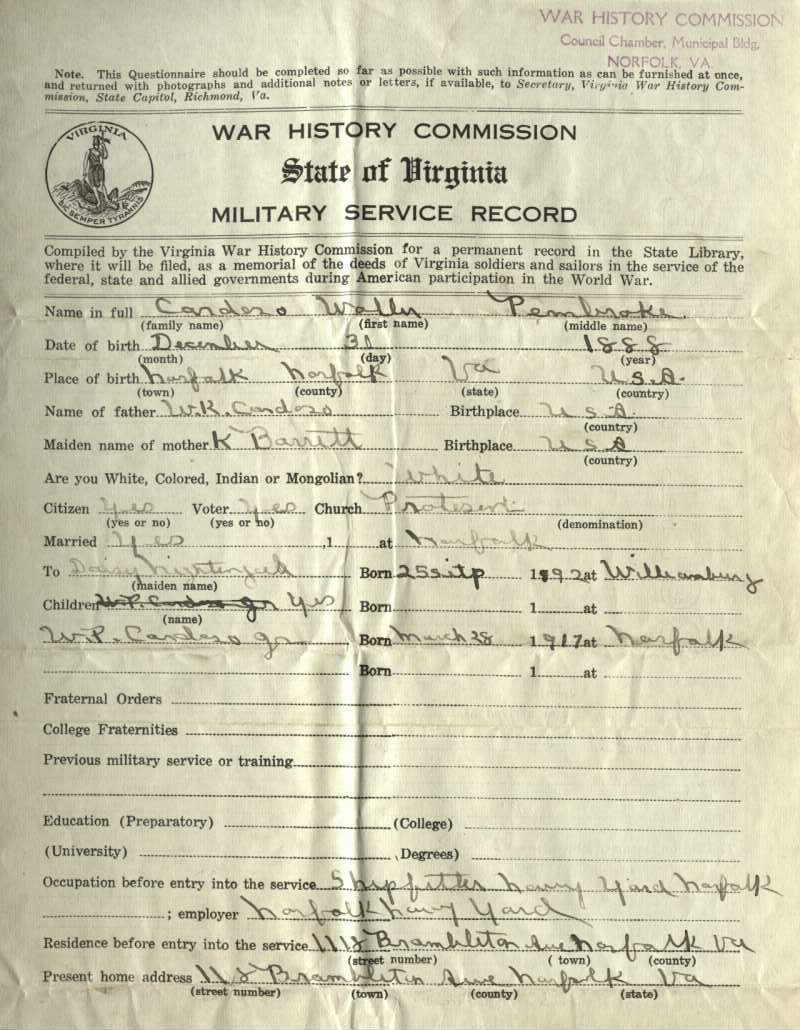 WAR HISTORY COMMISSION
Council Chamber, Municipal Bldg,
NORFOLK, VA
Note. This Questionnaire should be completed so far as possible with such information as can be furnished at once,
and returned with photographs and additional notes or letters, if available, to Secretary, Virginia War History Com-
mission, State Capitol, Richmond, Va.
VIRGINIA
SIC SEMPER TYRANNIS
WAR HISTORY COMMISSION
State of Virginia
MILITARY SERVICE RECORD
Compiled by the Virginia War History Commission for a permanent record in the State Library,
where it will be filed, as a memorial of the deeds of Virginia soldiers and sailors in the service of the
federal, state and allied governments during American participation in the World War.
Name in full Cardozo Pembroke.
(family name) (first name) (middle name)
Date of birth December 31 1888
(month) (day) (year)
Place of birth Norfolk Norfolk Va U.S.A.
(town) (county) (state) (country)
Name of father Cardozo Birthplace U S A
(country)
Maiden name of mother K Barrett Birthplace U S A
(country)
Are you White, Colored, Indian or Mongolian? White
Citizen Yes Voter Yes Church
(yes or no) (yes or no) (denomination)
Married Yes , 1 at Norfolk
To Daisy Born 25 1892 at
(maiden name)
Children W.P. Cardozo Jr Yes Born 1 at
(name)
W.P. Cardozo Jr Born March 28 1917 at Norfolk
Born 1 at
Fraternal Orders
College Fraternities
Previous military service or training
Education (Preparatory) (College)
(University) (Degrees)
Occupation before entry into the service Shipfitter Navy Yard Norfolk
; employer Norfolk Navy Yard
Residence before entry into the service Brambleton Ave Norfolk Va
(street number) (town) (county)
Present home address Brambleton Ave Norfolk Va
(street number) (town) (county) (state)